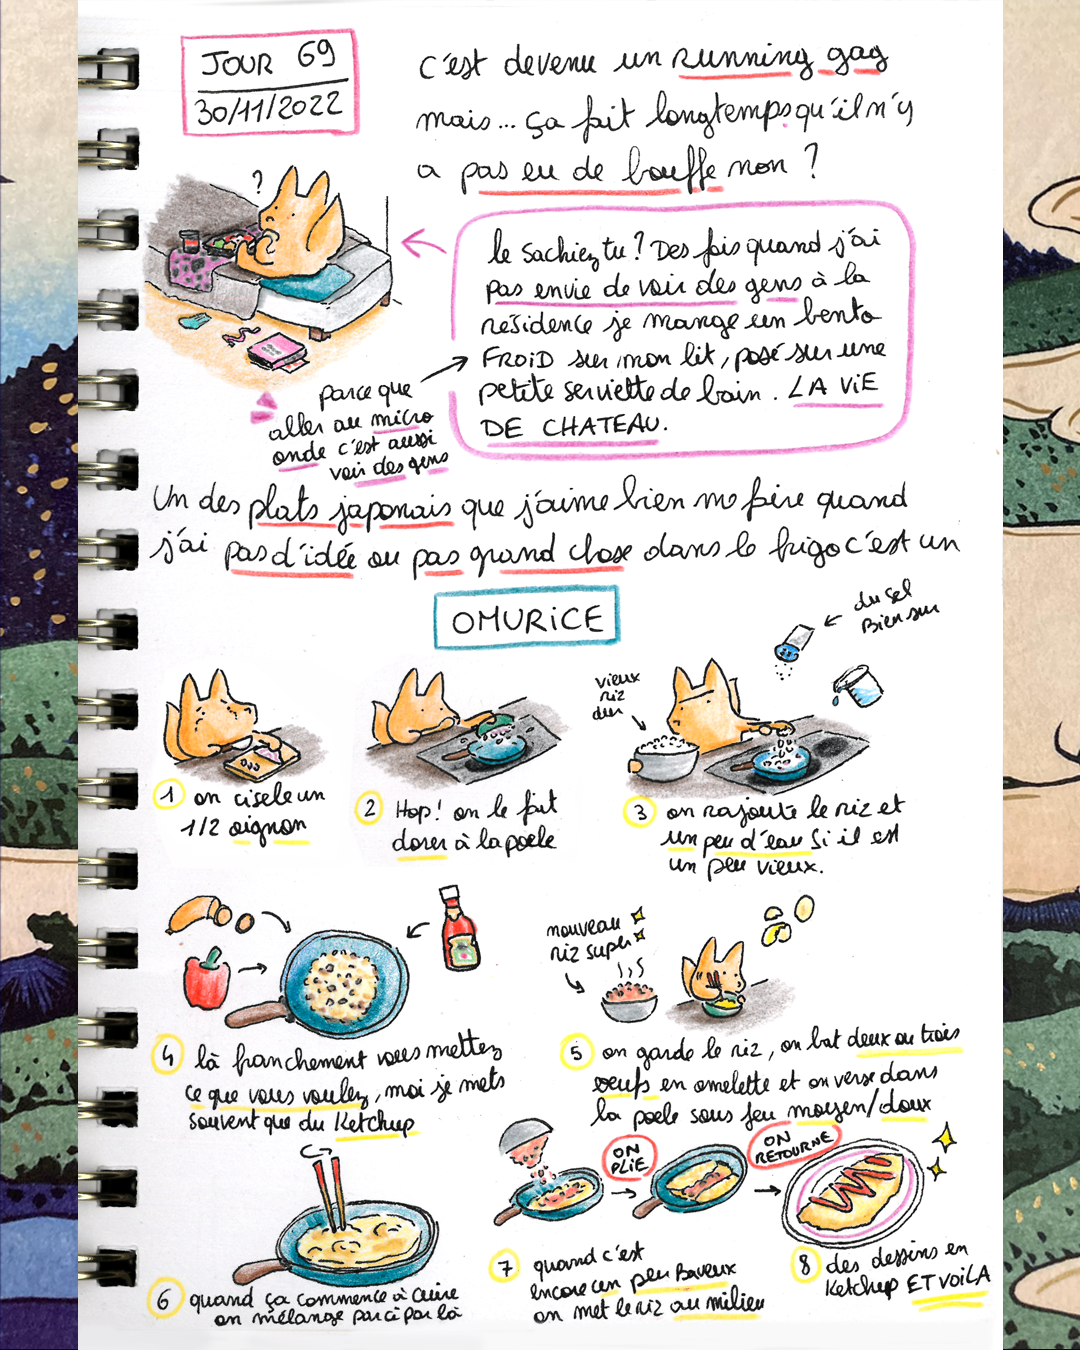 JOUR 69
30/11/2022
c'est devenu un running gag
mais... ça fait longtemps qu'il n'y
a pas eu de bouffe non ?
?
le sachiez tu ? Des fois quand j'ai
pas envie de voir des gens à la
résidence je mange un bento
FROID sur mon lit, posé sur une
petite serviette de bain. LA VIE
DE CHATEAU.
parce que
aller au micro
onde c'est aussi
voir des gens
Un des plats japonais que j'aime bien me faire quand
j'ai pas d'idée ou pas grand chose dans le frigo c'est un
OMURICE
du sel
Bien sur
vieux
riz
dur
1 on cisele un
1/2 oignon
2 Hop! on le fait
dorer à la poele
3 on rajoute le riz et
un peu d'eau si il est
un peu vieux.
4 là franchement vous mettez
ce que vous voulez, moi je mets
souvent que du Ketchup
nouveau
riz super
5 on garde le riz, on bat deux ou trois
oeufs en omelette et on verse dans
la poele sous feu moyen/doux
6 quand ça commence à cuire
on mélange par ci par là
ON
PLIE
ON
RETOURNE
7 quand c'est
encore un peu Baveux
on met le riz au milieu
8 des dessins en
Ketchup ET VOILA